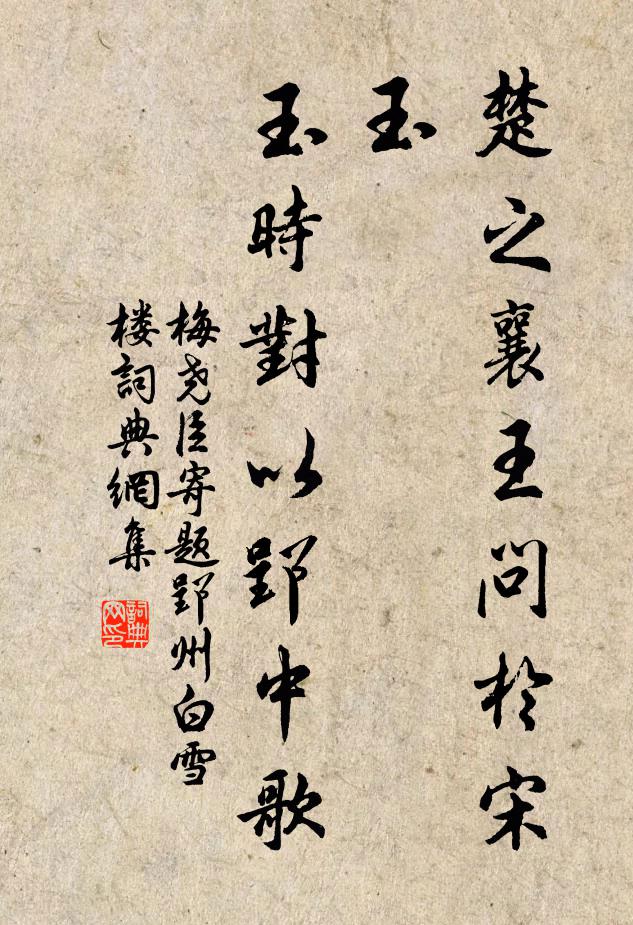 楚之襄王問於宋
玉
玉時對以郢中歌
梅尧臣寄题郢州白雪
楼詞典網集
詞典
网印